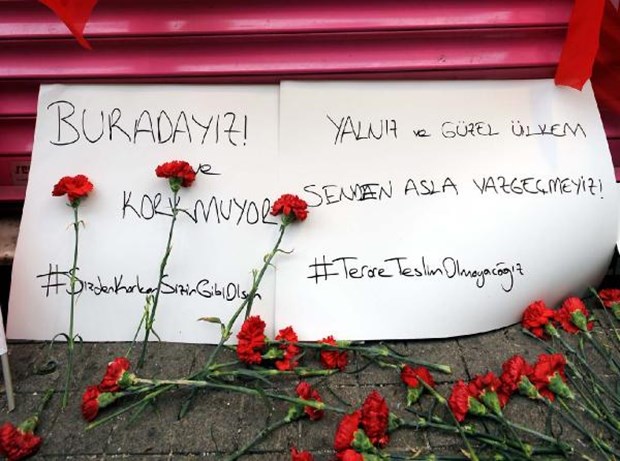 BURADAYIZ!
ve
KORKMUYOR
#SizdenKorkanSizinGibiOlsun
YALNIZ ve GÜZEL ÜLKEM
SENDEN ASLA VAZGEÇMEYİZ!
#TeröreTeslimOlmayacağız